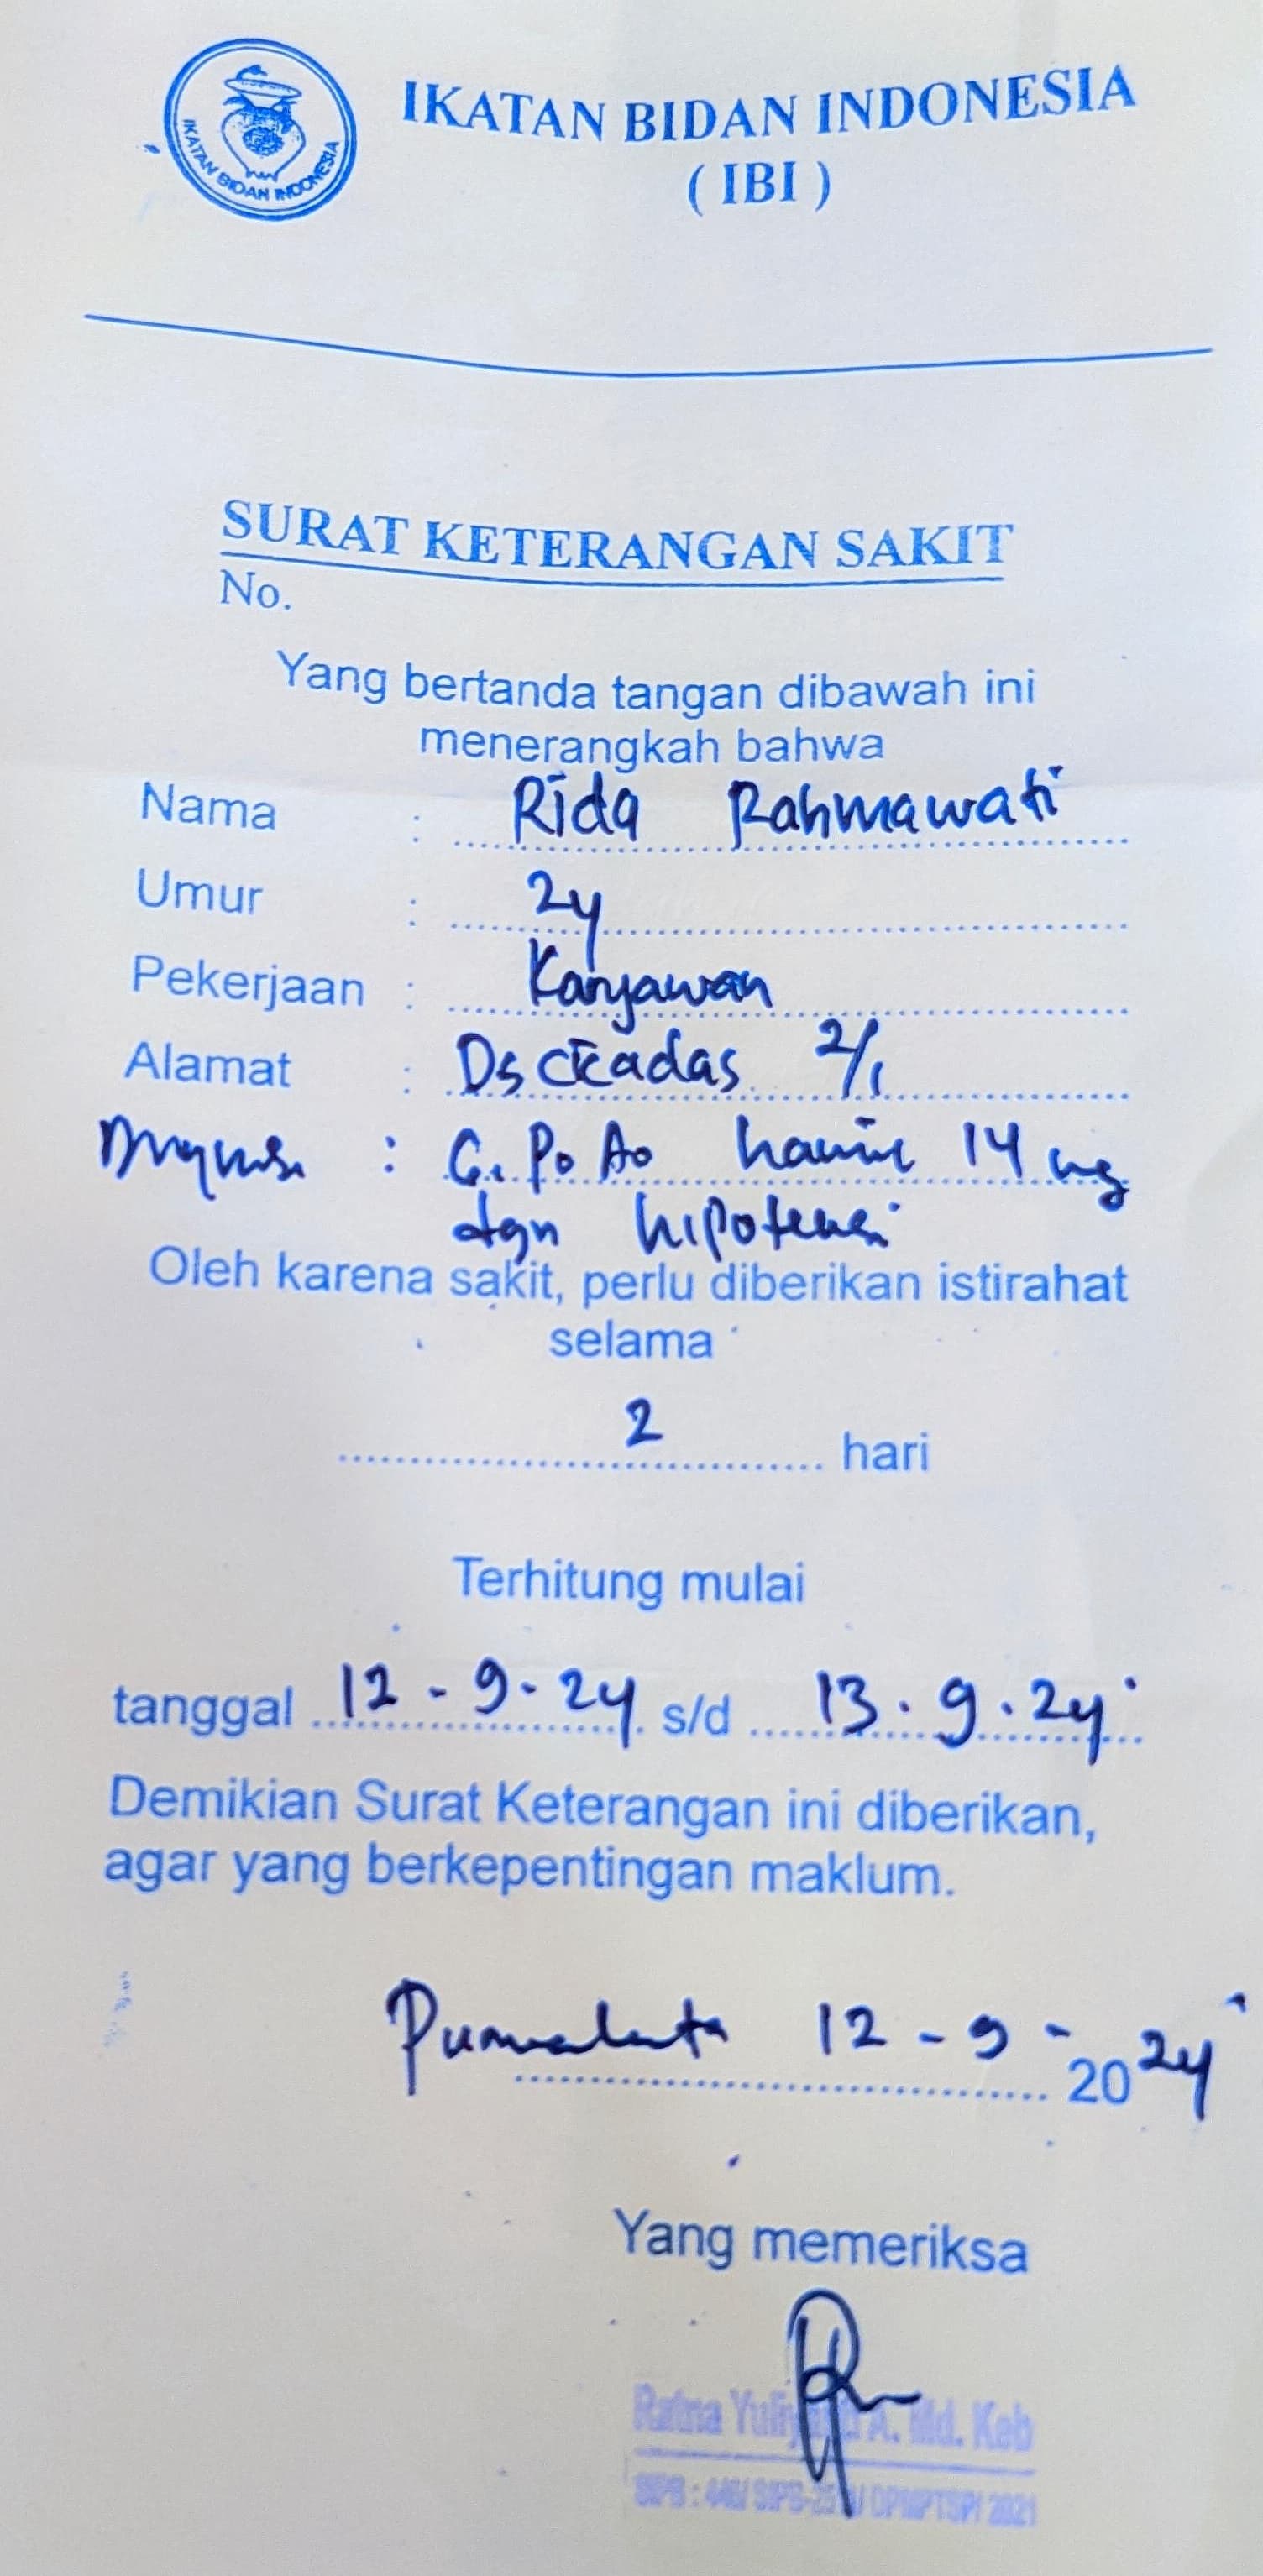 IKATAN BIDAN INDONESIA
IKATAN BIDAN INDONESIA
( IBI )
SURAT KETERANGAN SAKIT
No.
Yang bertanda tangan dibawah ini
menerangkah bahwa
Nama : Rida Rahmawati
Umur : 24
Pekerjaan : Karyawan
Alamat : Ds Cikadas 2/1
: G1 P0 A0 hamil 14 mg
dgn hipotensi
Oleh karena sakit, perlu diberikan istirahat
selama
2 hari
Terhitung mulai
tanggal 12 - 9 - 24 s/d 13 . 9 . 24
Demikian Surat Keterangan ini diberikan,
agar yang berkepentingan maklum.
Purwakarta 12 - 9 - 2024
Yang memeriksa
Ratna A. Md. Keb
SIPB : 2021